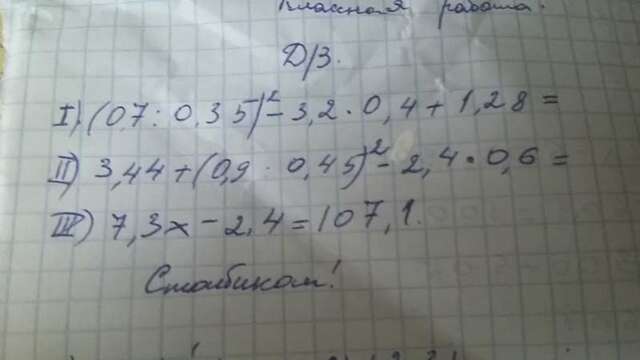 работа.
Д/З.
I) (0,7 : 0,35)² - 3,2 · 0,4 + 1,28 =
II) 3,44 + (0,9 : 0,45)² - 2,4 · 0,6 =
III) 7,3x - 2,4 = 107,1.
Столбиком!